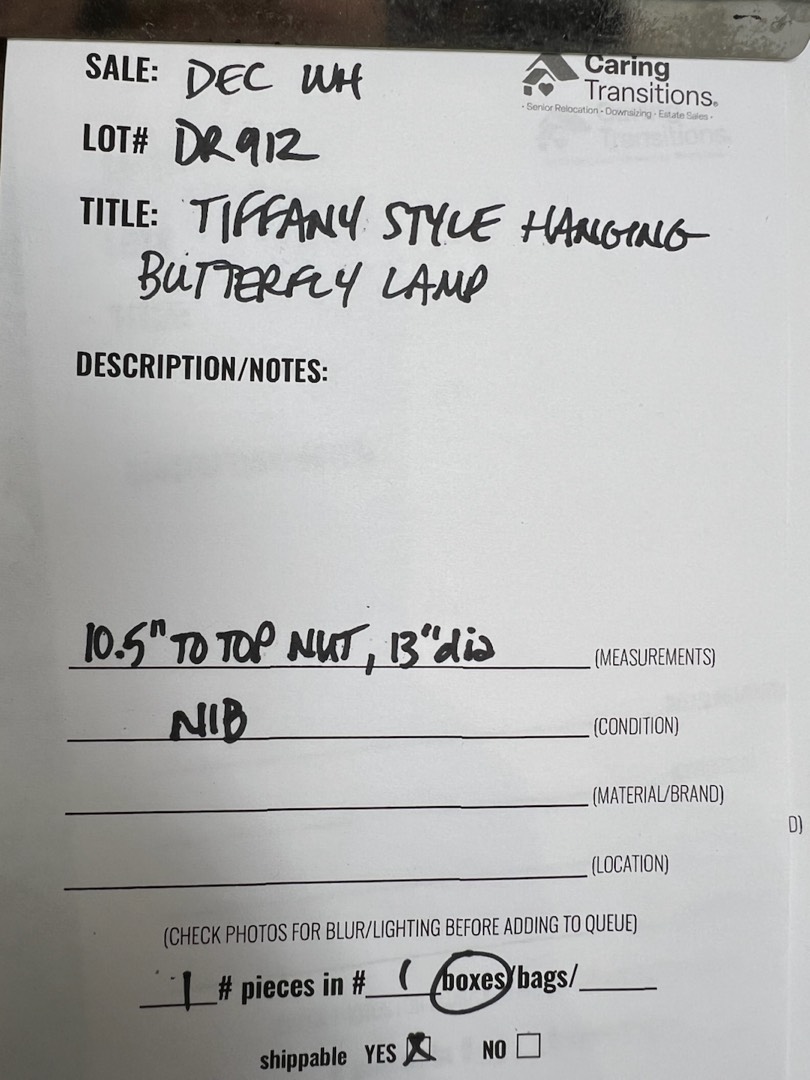 SALE: DEC WH
Caring
Transitions®
• Senior Relocation • Downsizing • Estate Sales •
LOT# DR912
TITLE: TIFFANY STYLE HANGING
BUTTERFLY LAMP
DESCRIPTION/NOTES:
10.5" TO TOP NUT, 13" dia (MEASUREMENTS)
NIB (CONDITION)
(MATERIAL/BRAND)
D)
(LOCATION)
(CHECK PHOTOS FOR BLUR/LIGHTING BEFORE ADDING TO QUEUE)
1 # pieces in # 1 boxes/bags/
shippable YES NO